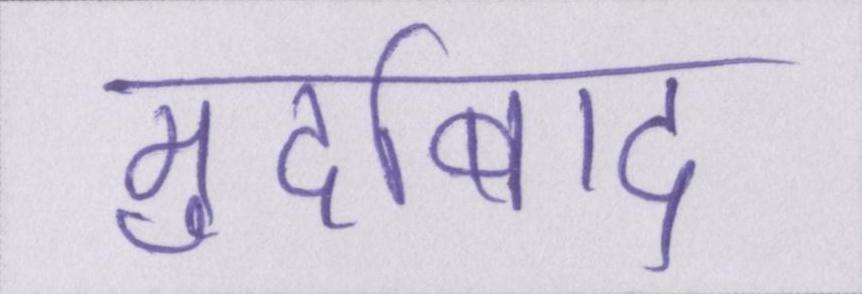 मुर्दाबाद